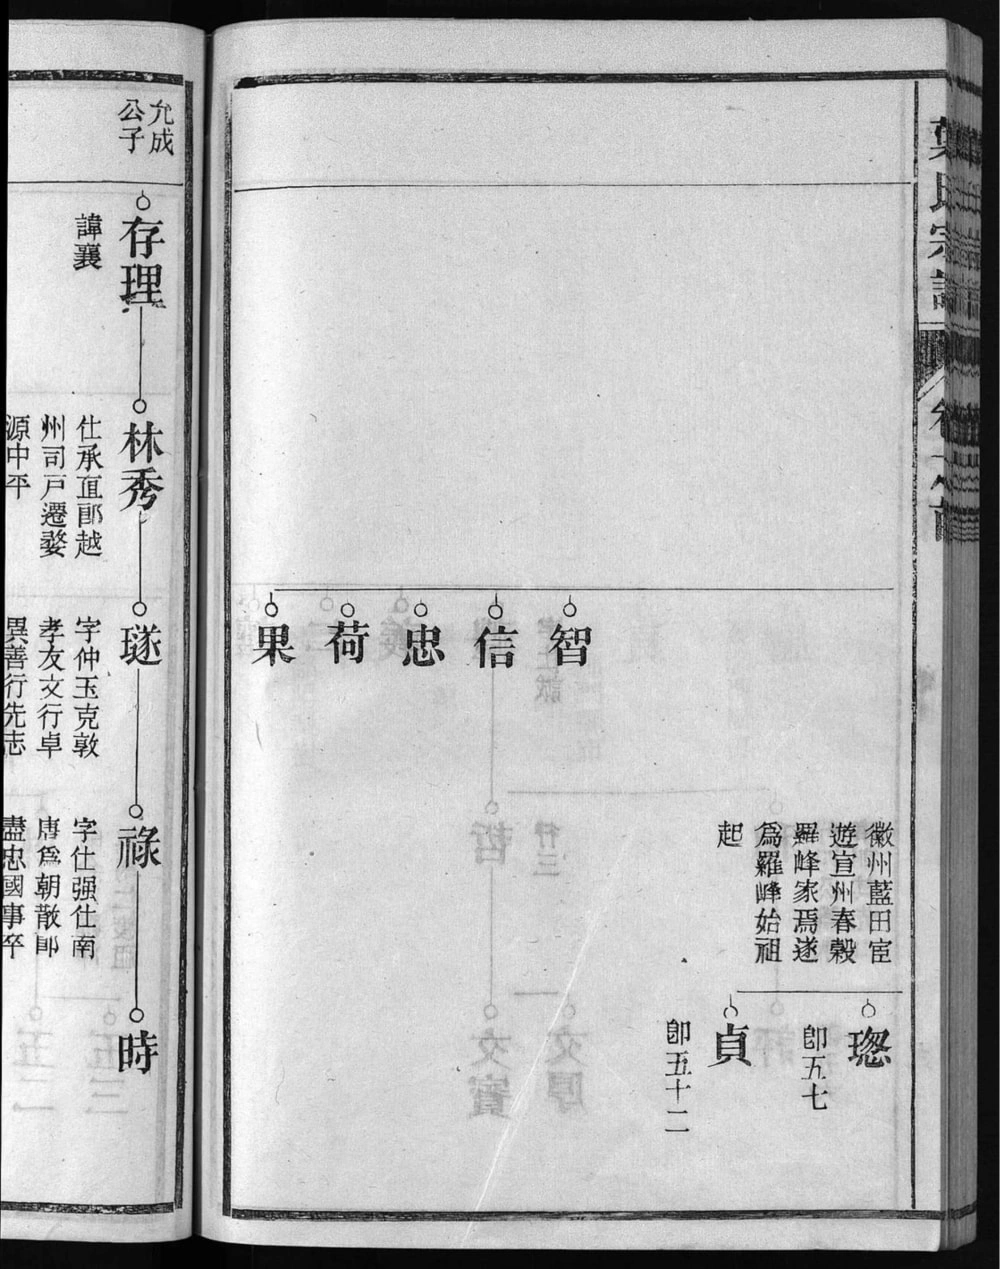 葉氏宗譜
徽州藍田宦
遊宣州春穀
羅峰家焉遂
爲羅峰始祖
起
璁
卽五七
貞
卽五十二
智
信
忠
荷
果
允成
公子
存理
諱襄
林秀
仕承直郎越
州司戸遷婺
源中平
璲
字仲玉克敦
孝友文行卓
異善行先志
祿
字仕强仕南
唐爲朝散郎
盡忠國事卒
時